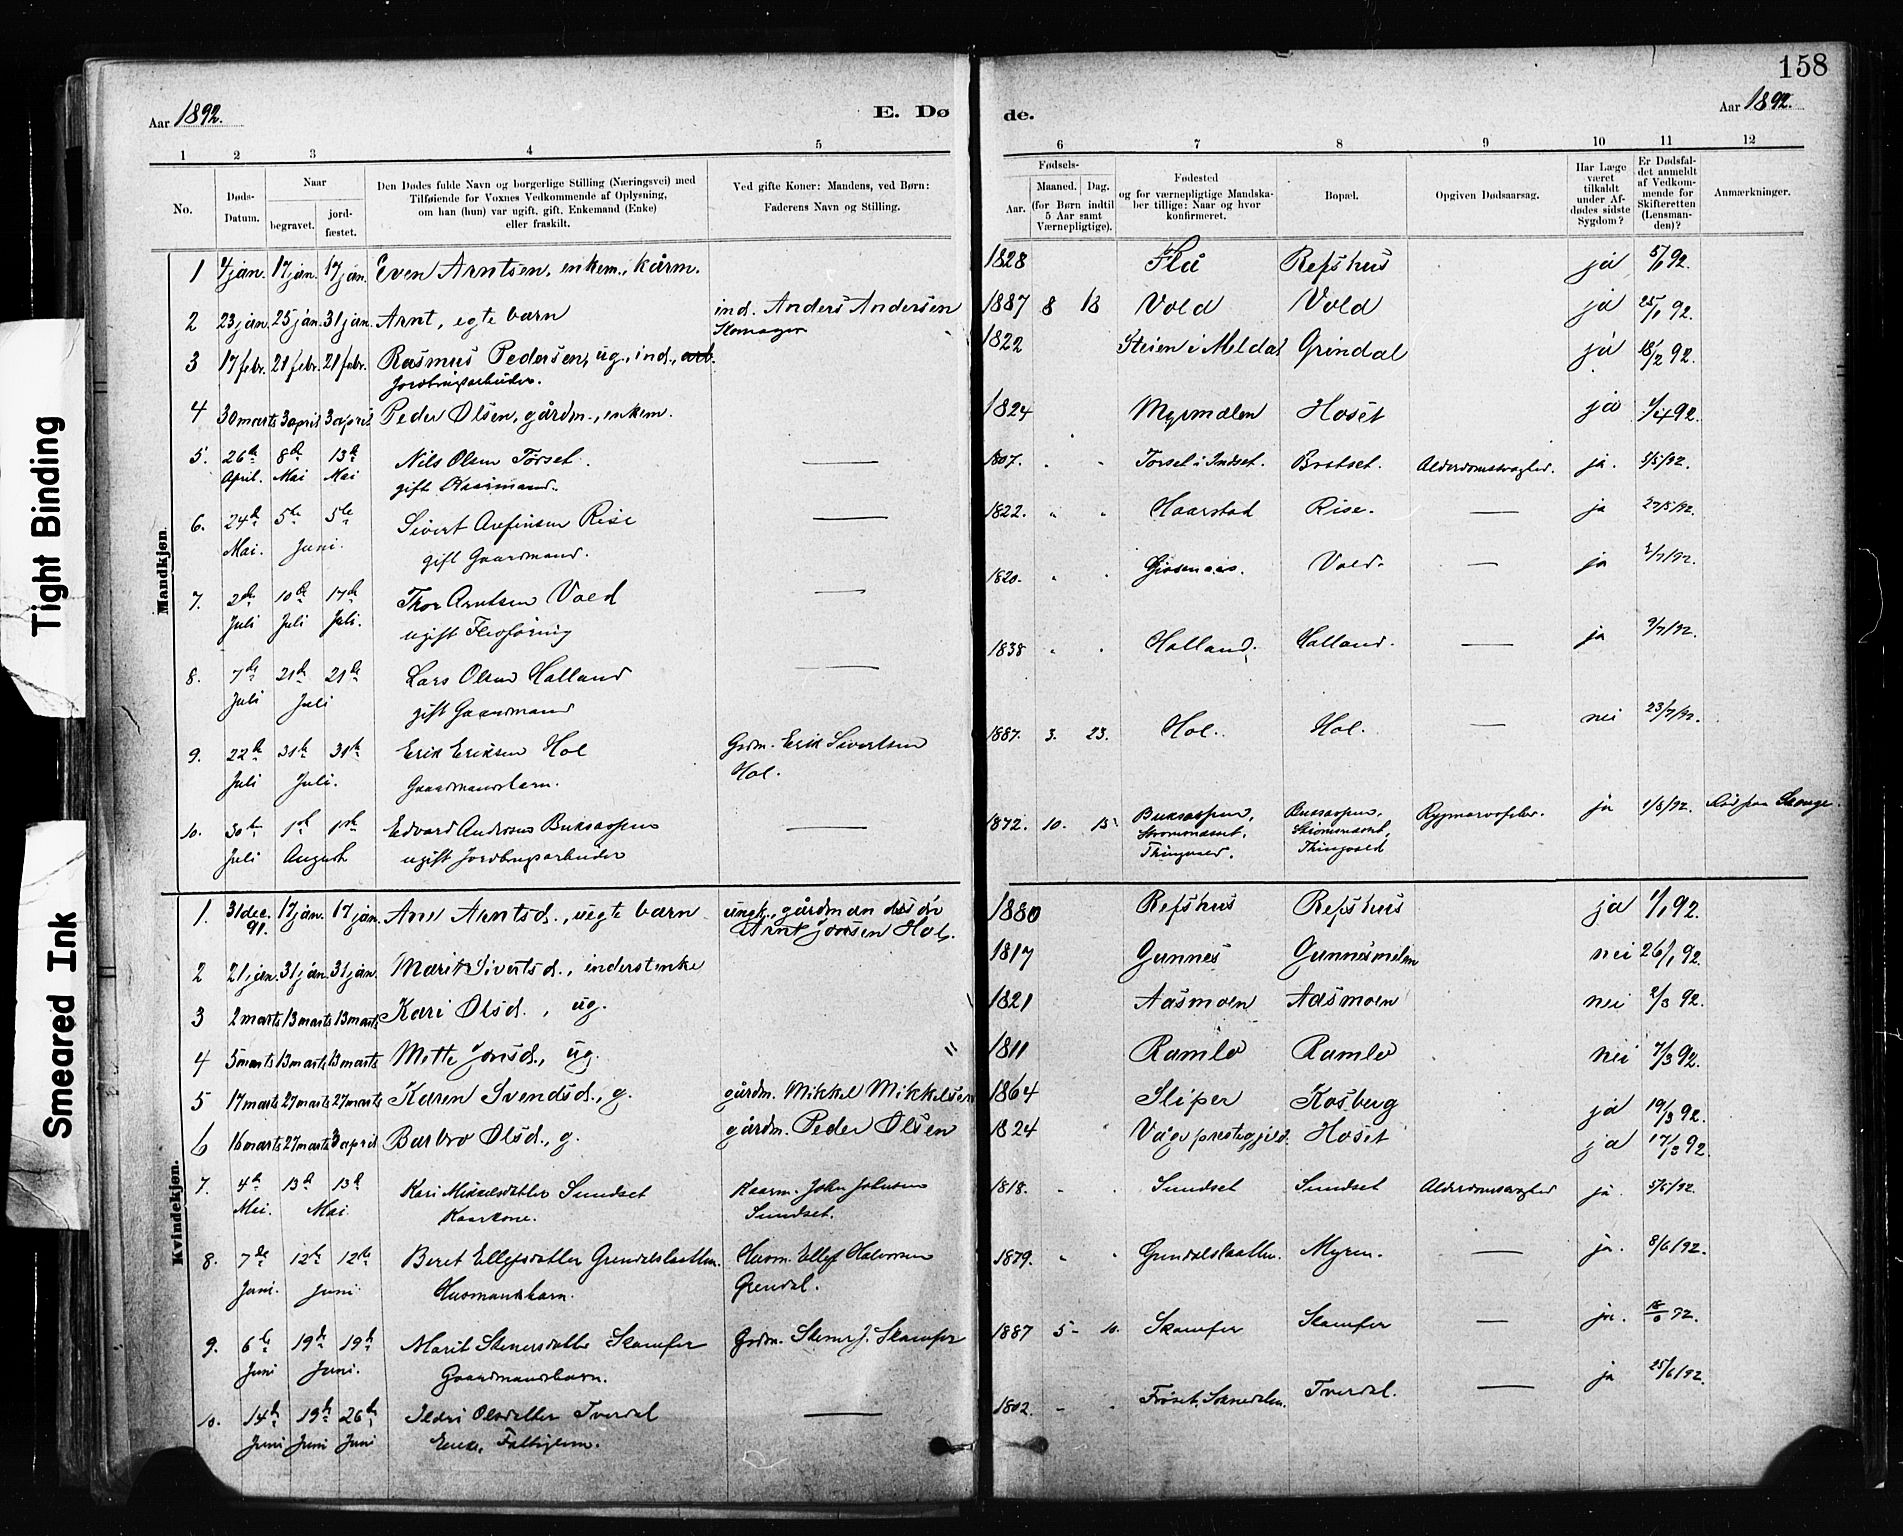 158
Aar 1892.
E. Dø
de.
Aar 1892.
1 2 3 4 5 6 7 8 9 10 11 12
No.
Døds-Datum.
Naar
begravet.
jordfæstet.
Den Dødes fulde Navn og borgerlige Stilling (Næringsvei) med
Tilføiende for Voxnes Vedkommende af Oplysning,
om han (hun) var ugift, gift, Enkemand (Enke)
eller fraskilt.
Ved gifte Koner: Mandens, ved Børn:
Faderens Navn og Stilling.
Fødsels-
Aar.
Maaned. Dag.
(for Børn indtil
5 Aar samt
Værnepligtige).
Fødested
og for værnepligtige Mandska-
ber tillige: Naar og hvor
konfirmeret.
Bopæl.
Opgiven Dødsaarsag.
Har Læge
været
tilkaldt
under Af-
dødes sidste
Sygdom?
Er Dødsfal-
det anmeldt
af Vedkom-
mende for
Skifteretten
(Lensman-
den)?
Anmærkninger.
Mandkjøn.
1 4 jan. 17 jan. 17 jan. Even Arntsen, enkem., kårm. 1828 Flå Refshus ja 5/1 92.
2 23 jan. 25 jan. 31 jan. Arnt, egte barn ind. Anders Andersen 1887 8 18 Vold Vold ja 25/1 92.
Skomager
3 17 febr. 21 febr. 21 febr. Rasmus Pedersen, ug., ind., arb. 1822 Steien i Meldal Grindal ja 18/2 92.
Jordbrugsarbeider.
4 30 marts 3 april 3 april Peder Olsen, gårdm., enkem. 1824 Myrmælen Hoset ja 1/4 92.
5. 26de 8de 13de Nils Olsen Torset. — 1807. Torset i Indset. Bratset. Alderdomssvaghed. ja. 5/5/92.
April. Mai Mai gift Kaarmand.
6. 24de 5te 5te Sivert Arfinsen Rise — 1822. Haarstad Rise. — ja 27/5/92.
Mai. Juni. gift Gaardmand.
7. 2de 10de 17de Thor Arntsen Vold — 1820. Vold. — ja 2/7/92.
Juli Juli Juli. ugift
8. 7de 21de 21de Lars Olsen Halland — 1838 Halland. Halland. — ja 9/7/92.
Juli Juli gift Gaardmand
9. 22de 31te 31te Erik Eriksen Hol Grdm. Erik Sivertsen 1887. 3. 23. Hol. Hol. — nei 23/7/92.
Juli Juli. Gaardmandsbarn. Hol.
10. 30te 1ste 1ste Edvard Andersen Buksaspen — 1872. 10. 15 Buksaspen, Buksaspen, ja 1/8/92.
Juli August ugift Jordbrugsarbeider Strømsnæset, Strømsnæset,
Thingvold. Thingvold
Kvindekjøn.
1. 31 dec. 17 jan. 17 jan. Ane Arntsd., uegte barn ungk., gårdmandssøn 1880 Refshus Refshus ja 1/1 92.
91. Arnt Jonsen Hol.
2 21 jan. 31 jan. 31 jan. Marit Sivertsd., inderstenke 1817 Gunnes Gunnesmelen nei 26/1 92.
3 2 marts 13 marts 13 marts Kari Olsd., ug. 1821 Aasmoen Aasmoen nei 2/3 92.
4 5 marts 13 marts 13 marts Mette Jonsd., ug. 1811 Ramlo Ramlo nei 7/3 92.
5 17 marts 27 marts 27 marts Karen Svendsd., g. gårdm. Mikkel Mikkelsen 1864 Sliper Kosberg ja 19/3 92.
6 16 marts 27 marts 3 april Barbro Olsd., g. gårdm. Peder Olsen 1824 Vågø prestegjeld. Hoset ja 17/3 92.
7. 4de 13de 13de Kari Mikkelsdatter Sundset Kaarm. John Johnsen 1818. Sundset Sundset Alderdomssvaghed ja 5/5/92.
Mai. Mai. Kaarkone. Sundset.
8. 7de 12te 12te Beret Ellefsdatter Grendalslætten. Husm. Ellef Halvorsen 1879. Grendalslætten. Myren. — ja. 8/6/92.
Juni. Juni Husmandsbarn. Grendal.
9. 6te 19de 19de Marit Stenersdatter Skamfer Grdm. Stener J. Skamfer 1887 5 10. Skamfer Skamfer — ja. 18/6 92.
Juni Juni. Gaardmandsbarn.
10. 14de 19de 26de Ildri Olsdatter Tverdal — 1802. Frøset, Soknedalen. Tverdal. — ja 25/6/92.
Juni Juni Juni Enke, Fattiglem.
Tight Binding
Smeared Ink